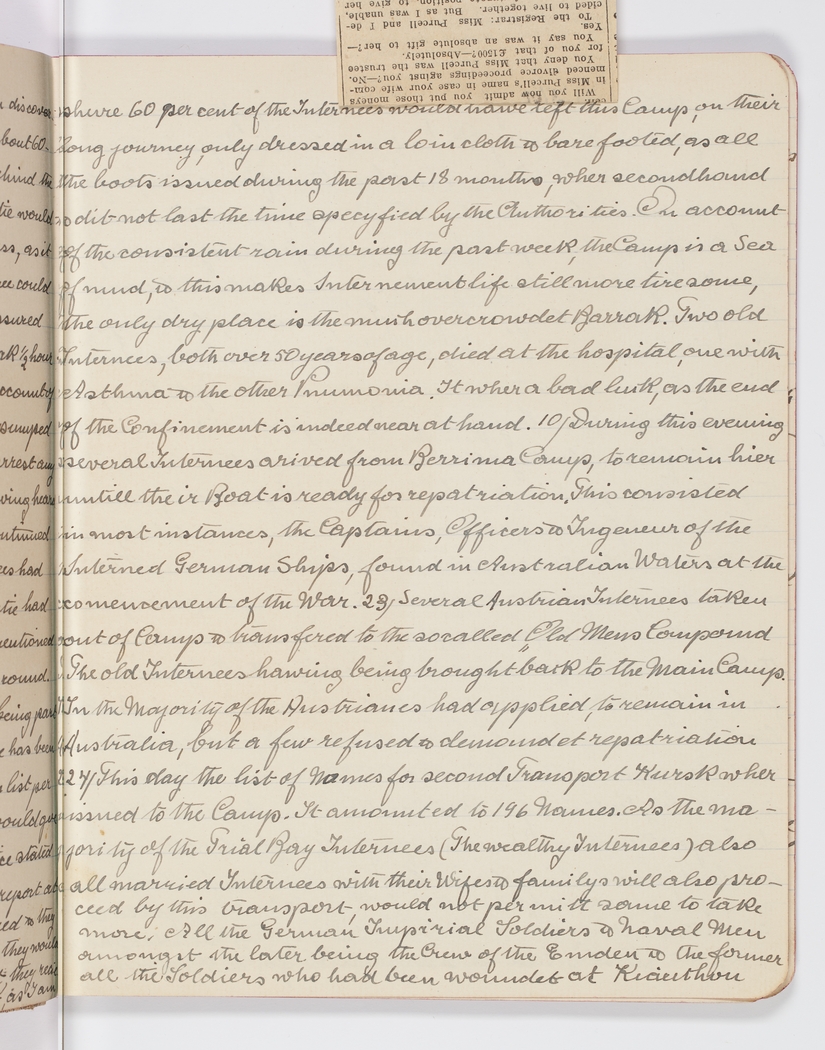 cided to live together. But as I was unable,
To the Registrar: Miss Purcell and I de-
Yes.
You say it was an absolute gift to her?—
for you of that £1500?—Absolutely.
You deny that Miss Purcell was the trustee
menced divorce proceedings against you?—No.
in Miss Purcell's name in case your wife com-
Will you now admit you put those moneys
shure 60 per cent of the Internees would have left this Camp, on their
long journey, only dressed in a loin cloth & bare footed, as all
the boots issued during the past 18 months, wher secondhand
& dit not last the time specyfied by the Authorities. On account
of the consistent rain during the past week, the Camp is a Sea
of mud, & this makes Internement life still more tiresome,
the only dry place is the mush overcrowdet Barrak. Two old
Internees, both over 50 years of age, died at the hospital, one with
Asthma & the other Pnumonia. It wher a bad luk, as the end
of the Confinement is indeed near at hand. 10/ During this evening
several Internees arived from Berrima Camp, to remain hier
untill their Boat is ready for repatriation. This consisted
in most instances, the Captains, Officers & Ingeneur of the
Interned German Ships, found in Australian Waters at the
comencement of the War. 23/ Several Austrian Internees taken
out of Camp & transfered to the socalled „Old Mens Compound
The old Internees hawing being brought back to the Main Camp.
In the Majority of the Austrianes had applied, to remain in
Australia, but a few refused & demondet repatriation
27/ This day the list of Names for second Transport Kursk wher
issued to the Camp. It amounted to 196 Names. As the ma-
jority of the Trial Bay Internees (The wealthy Internees) also
all married Internees with their Wifes & familys will also pro-
ceed by this transport, would not permitt same to take
more. All the German Impirial Soldiers & Naval Men
amongst the later being the Crew of the Emden & the former
all the Soldiers who had been woundet at Kiauthou